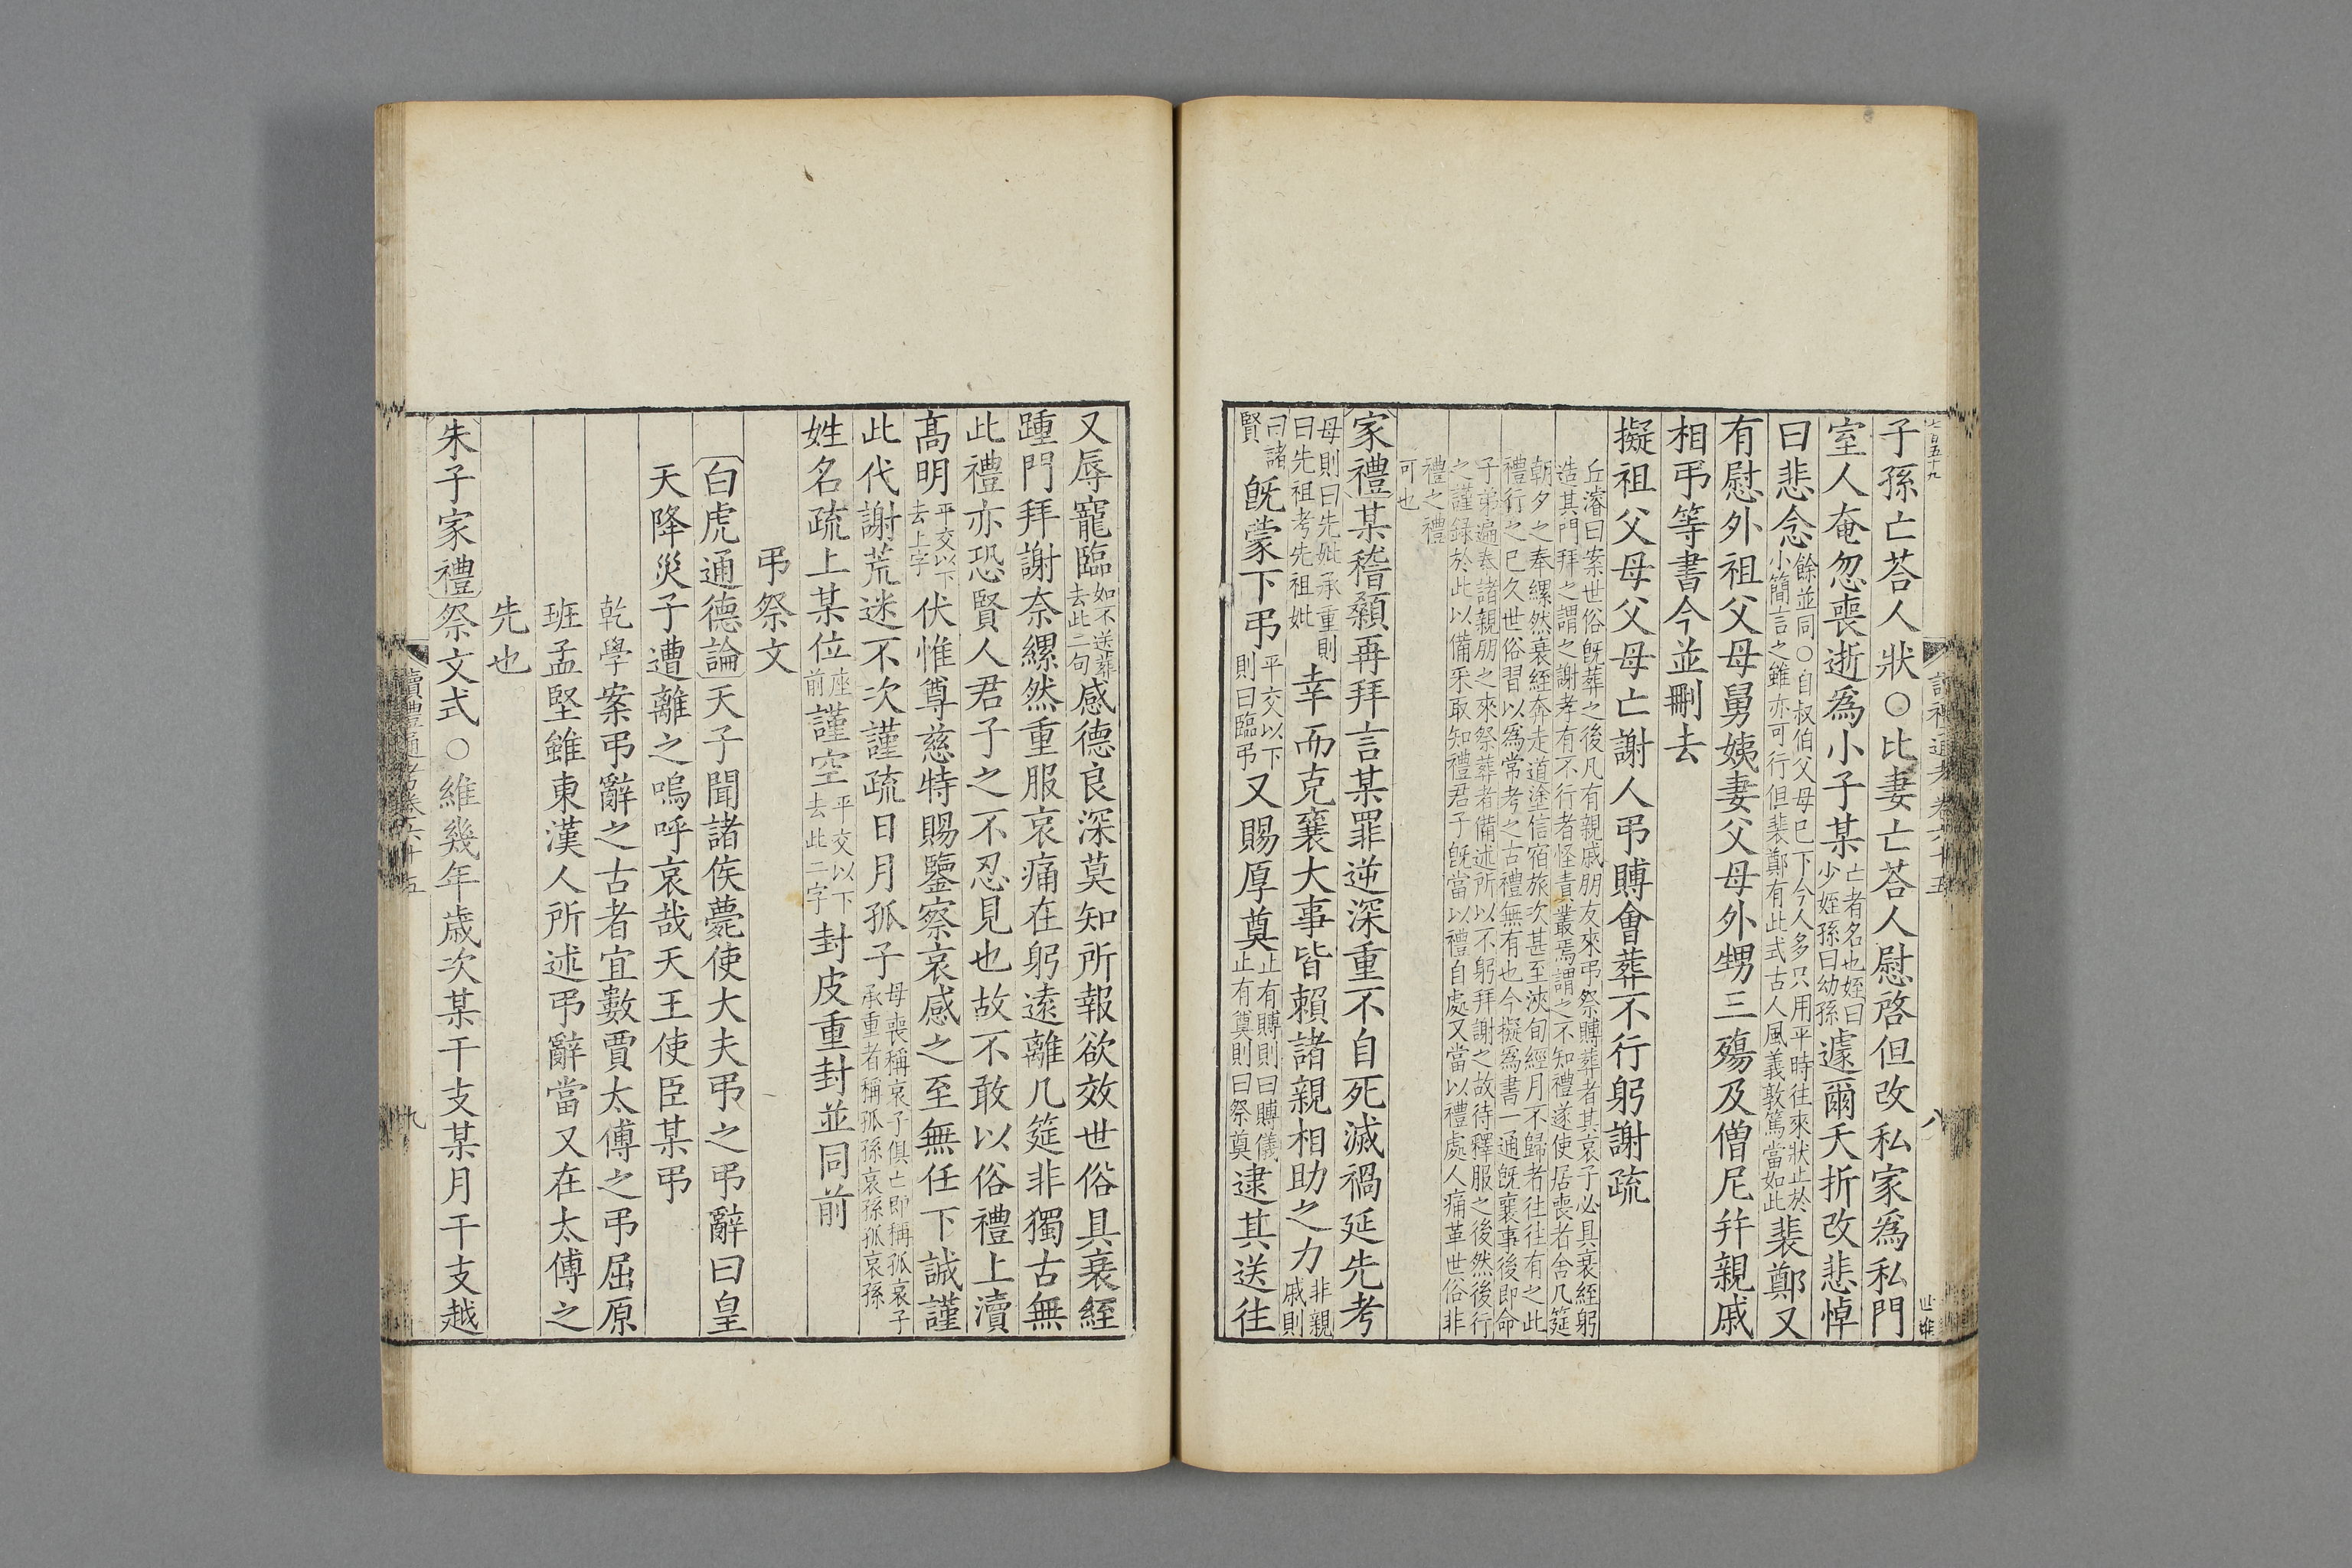 子孫亡荅人狀○比妻亡荅人慰啓但改私家爲私門
室人奄忽喪逝爲小子某亡者名也姪曰少姪孫曰幼孫遽爾夭折改悲悼
曰悲念餘並同○自叔伯父母已下今人多只用平時往來狀止於小簡言之雖亦可行但裴鄭有此式古人風義敦篤當如此裴鄭又
有慰外祖父母舅姨妻父母外甥三殤及僧尼并親戚
相弔等書今並刪去
擬祖父母父母亡謝人弔賻會葬不行躬謝疏
丘濬曰案世俗旣葬之後凡有親戚朋友來弔祭賻葬者其哀子必具衰絰躬
造其門拜之謂之謝孝有不行者怪責叢焉謂之不知禮遂使居喪者舍几筵
朝夕之奉縲然衰絰奔走道途信宿旅次甚至浹旬經月不歸者往往有之此
禮行之已久世俗習以爲常考之古禮無有也今擬爲書一通旣襄事後即命
子弟遍奉諸親朋之來祭葬者備述所以不躬拜謝之故待釋服之後然後行
之謹錄於此以備采取知禮君子旣當以禮自處又當以禮處人痛革世俗非
禮之禮
可也
家禮某稽顙再拜言某罪逆深重不自死滅禍延先考
母則曰先妣承重則曰先祖考先祖妣幸而克襄大事皆賴諸親相助之力非親戚則
曰諸賢旣蒙下弔平交以下則曰臨弔又賜厚奠止有賻則曰賻儀止有奠則曰祭奠逮其送往
又辱寵臨如不送葬去此二句感德良深莫知所報欲效世俗具衰絰
踵門拜謝奈縲然重服哀痛在躬遠離几筵非獨古無
此禮亦恐賢人君子之不忍見也故不敢以俗禮上瀆
高明平交以下去上字伏惟尊慈特賜鑒察哀感之至無任下誠謹
此代謝荒迷不次謹疏日月孤子母喪稱哀子俱亡即稱孤哀子承重者稱孤孫哀孫孤哀孫
姓名疏上某位座前謹空平交以下去此二字封皮重封並同前
弔祭文
白虎通德論天子聞諸侯薨使大夫弔之弔辭曰皇
天降災子遭離之嗚呼哀哉天王使臣某弔
乾學案弔辭之古者宜數賈太傅之弔屈原
班孟堅雖東漢人所述弔辭當又在太傅之
先也
朱子家禮祭文式○維幾年歲次某干支某月干支越
讀禮通考卷六十五
九